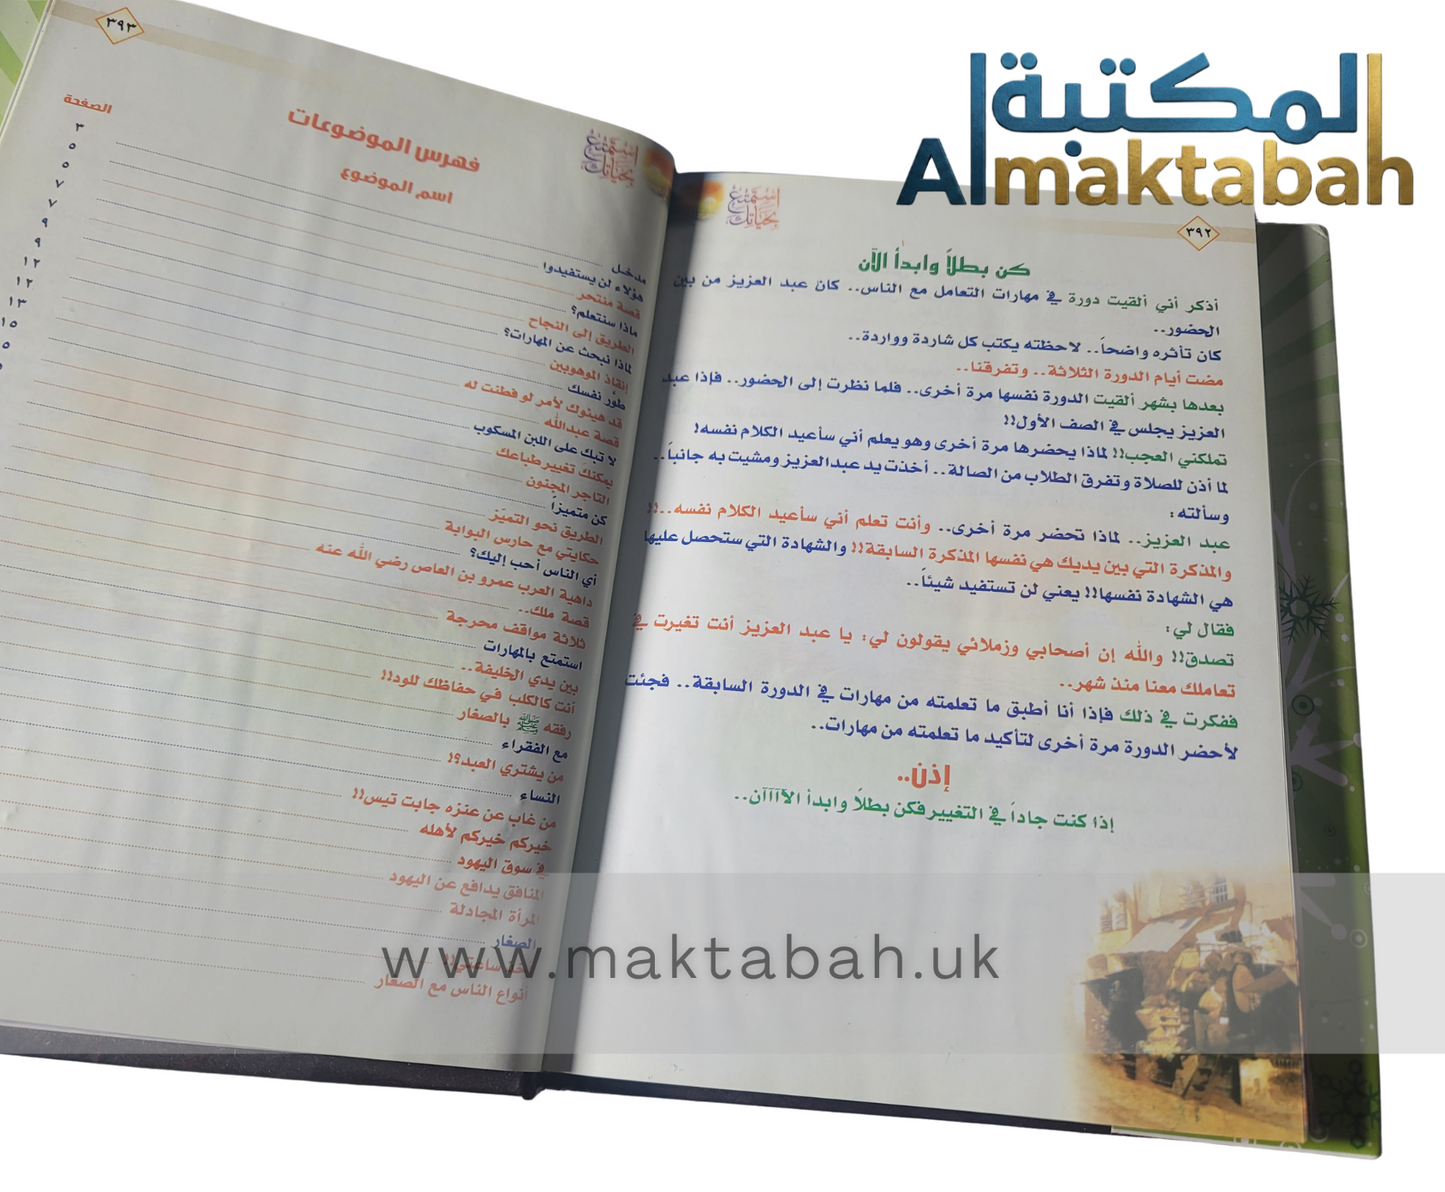 المكتبة
Almaktabah
٣٩٢
استمتع
بحياتك
كن بطلاً وابدأ الآن
أذكر أني ألقيت دورة في مهارات التعامل مع الناس.. كان عبد العزيز من بين
الحضور..
كان تأثره واضحاً.. لاحظته يكتب كل شاردة وواردة..
مضت أيام الدورة الثلاثة.. وتفرقنا..
بعدها بشهر ألقيت الدورة نفسها مرة أخرى.. فلما نظرت إلى الحضور.. فإذا عبد
العزيز يجلس في الصف الأول!!
تملكني العجب!! لماذا يحضرها مرة أخرى وهو يعلم أني سأعيد الكلام نفسه!
لما أذن للصلاة وتفرق الطلاب من الصالة.. أخذت يد عبدالعزيز ومشيت به جانباً..
وسألته:
عبد العزيز.. لماذا تحضر مرة أخرى.. وأنت تعلم أني سأعيد الكلام نفسه..!!
والمذكرة التي بين يديك هي نفسها المذكرة السابقة!! والشهادة التي ستحصل عليها
هي الشهادة نفسها!! يعني لن تستفيد شيئاً..
فقال لي:
تصدق!! والله إن أصحابي وزملائي يقولون لي: يا عبد العزيز أنت تغيرت في
تعاملك معنا منذ شهر..
ففكرت في ذلك فإذا أنا أطبق ما تعلمته من مهارات في الدورة السابقة.. فجئت
لأحضر الدورة مرة أخرى لتأكيد ما تعلمته من مهارات..
إذن..
إذا كنت جاداً في التغيير فكن بطلاً وابدأ الآآآآن..
٣٩٣
استمتع
بحياتك
فهرس الموضوعات
اسم الموضوع
الصفحة
مدخل ٣
هؤلاء لن يستفيدوا ٥
قصة منتحر ٥
ماذا سنتعلم؟ ٧
الطريق إلى النجاح ٧
لماذا نبحث عن المهارات؟ ٩
إنقاذ الموهوبين ٩
طور نفسك ١٢
قد هيئوك لأمر لو فطنت له ١٢
قصة عبدالله ١٣
لا تبك على اللبن المسكوب ١٥
يمكنك تغيير طباعك
التاجر المجنون
كن متميزاً
الطريق نحو التميّز
حكايتي مع حارس البوابة
أي الناس أحب إليك؟
داهية العرب عمرو بن العاص رضي الله عنه
قصة ملك..
ثلاثة مواقف محرجة
استمتع بالمهارات
بين يدي الخليفة..
أنت كالكلب في حفاظك للود!!
رفقه ﷺ بالصغار
مع الفقراء
من يشتري العبد؟!
النساء
من غاب عن عنزه جابت تيس!!
خيركم خيركم لأهله
في سوق اليهود
المنافق يدافع عن اليهود
المرأة المجادلة
الصغار
أنواع الناس مع الصغار
www.maktabah.uk